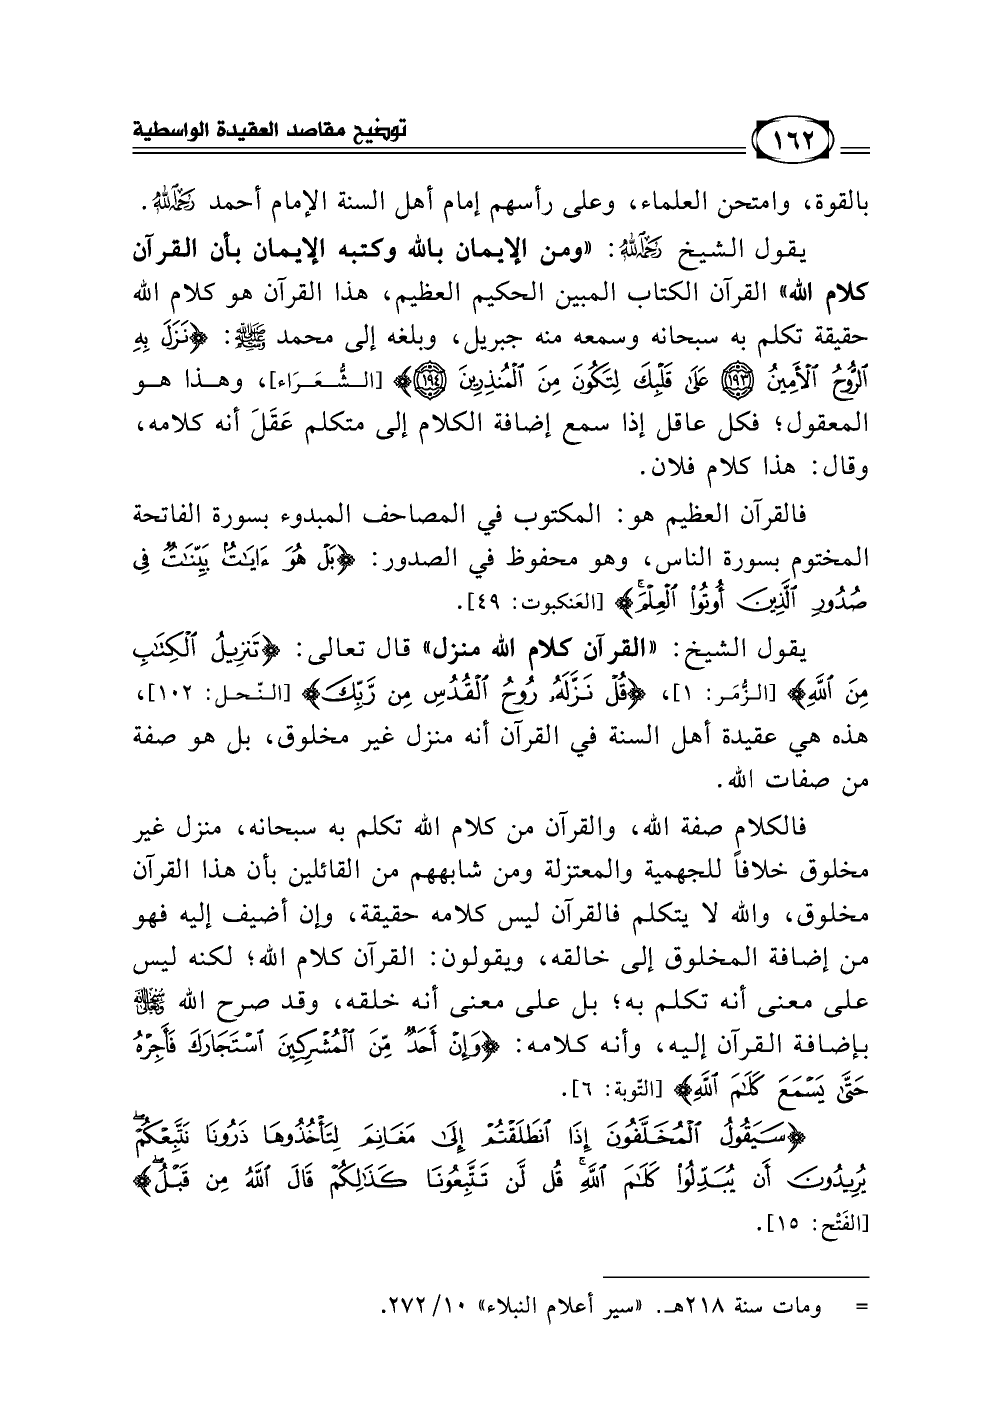 توضيح مقاصد العقيدة الواسطية
١٦٢
بالقوة، وامتحن العلماء، وعلى رأسهم إمام أهل السنة الإمام أحمد رحمه الله.
يقول الشيخ رحمه الله: «ومن الإيمان بالله وكتبه الإيمان بأن القرآن
كلام الله» القرآن الكتاب المبين الحكيم العظيم، هذا القرآن هو كلام الله
حقيقة تكلم به سبحانه وسمعه منه جبريل، وبلغه إلى محمد ﷺ: ﴿نَزَلَ بِهِ
ٱلرُّوحُ ٱلۡأَمِينُ ١٩٣ عَلَىٰ قَلۡبِكَ لِتَكُونَ مِنَ ٱلۡمُنذِرِينَ ١٩٤﴾ [الشُّعَرَاء]، وهذا هو
المعقول؛ فكل عاقل إذا سمع إضافة الكلام إلى متكلم عَقَلَ أنه كلامه،
وقال: هذا كلام فلان.
فالقرآن العظيم هو: المكتوب في المصاحف المبدوء بسورة الفاتحة
المختوم بسورة الناس، وهو محفوظ في الصدور: ﴿بَلۡ هُوَ ءَايَٰتُۢ بَيِّنَٰتٞ فِي
صُدُورِ ٱلَّذِينَ أُوتُواْ ٱلۡعِلۡمَۚ﴾ [العَنكبوت: ٤٩].
يقول الشيخ: «القرآن كلام الله منزل» قال تعالى: ﴿تَنزِيلُ ٱلۡكِتَٰبِ
مِنَ ٱللَّهِ﴾ [الزُّمَر: ١]، ﴿قُلۡ نَزَّلَهُۥ رُوحُ ٱلۡقُدُسِ مِن رَّبِّكَ﴾ [النّحل: ١٠٢]،
هذه هي عقيدة أهل السنة في القرآن أنه منزل غير مخلوق، بل هو صفة
من صفات الله.
فالكلام صفة الله، والقرآن من كلام الله تكلم به سبحانه، منزل غير
مخلوق خلافاً للجهمية والمعتزلة ومن شابههم من القائلين بأن هذا القرآن
مخلوق، والله لا يتكلم فالقرآن ليس كلامه حقيقة، وإن أضيف إليه فهو
من إضافة المخلوق إلى خالقه، ويقولون: القرآن كلام الله؛ لكنه ليس
على معنى أنه تكلم به؛ بل على معنى أنه خلقه، وقد صرح الله
بإضافة القرآن إليه، وأنه كلامه: ﴿وَإِنۡ أَحَدٞ مِّنَ ٱلۡمُشۡرِكِينَ ٱسۡتَجَارَكَ فَأَجِرۡهُ
حَتَّىٰ يَسۡمَعَ كَلَٰمَ ٱللَّهِ﴾ [التّوبة: ٦].
﴿سَيَقُولُ ٱلۡمُخَلَّفُونَ إِذَا ٱنطَلَقۡتُمۡ إِلَىٰ مَغَانِمَ لِتَأۡخُذُوهَا ذَرُونَا نَتَّبِعۡكُمۡۖ
يُرِيدُونَ أَن يُبَدِّلُواْ كَلَٰمَ ٱللَّهِۚ قُل لَّن تَتَّبِعُونَا كَذَٰلِكُمۡ قَالَ ٱللَّهُ مِن قَبۡلُۖ﴾
[الفَتْح: ١٥].
= ومات سنة ٢١٨هـ. «سير أعلام النبلاء» ١٠/ ٢٧٢.